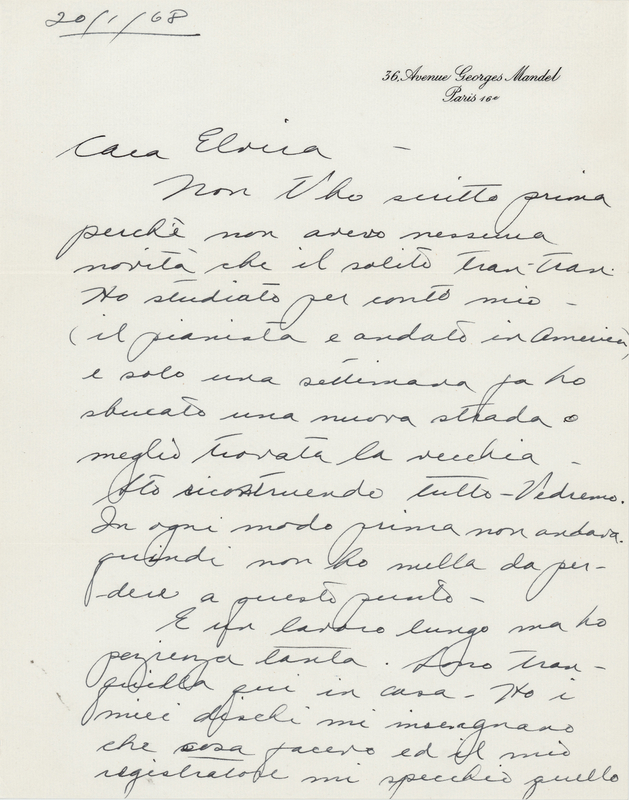 20/1/68
36, Avenue Georges Mandel
Paris 16e
Cara Elvira –
Non t'ho scritto prima
perchè non avevo nessuna
novità che il solito tran-tran.
Ho studiato per conto mio –
(il pianista e andato in America)
e solo una settimana fa ho
sbucato una nuova strada o
meglio trovata la vecchia –
Sto ricostruendo tutto – Vedremo.
In ogni modo prima non andava.
quindi non ho nulla da per-
dere a questo punto –
E un lavoro lungo ma ho
pazienza tanta. Sono tran-
quilla qui in casa – Ho i
miei dischi mi insegnano
che cosa facevo ed il mio
registratore mi specchio quello